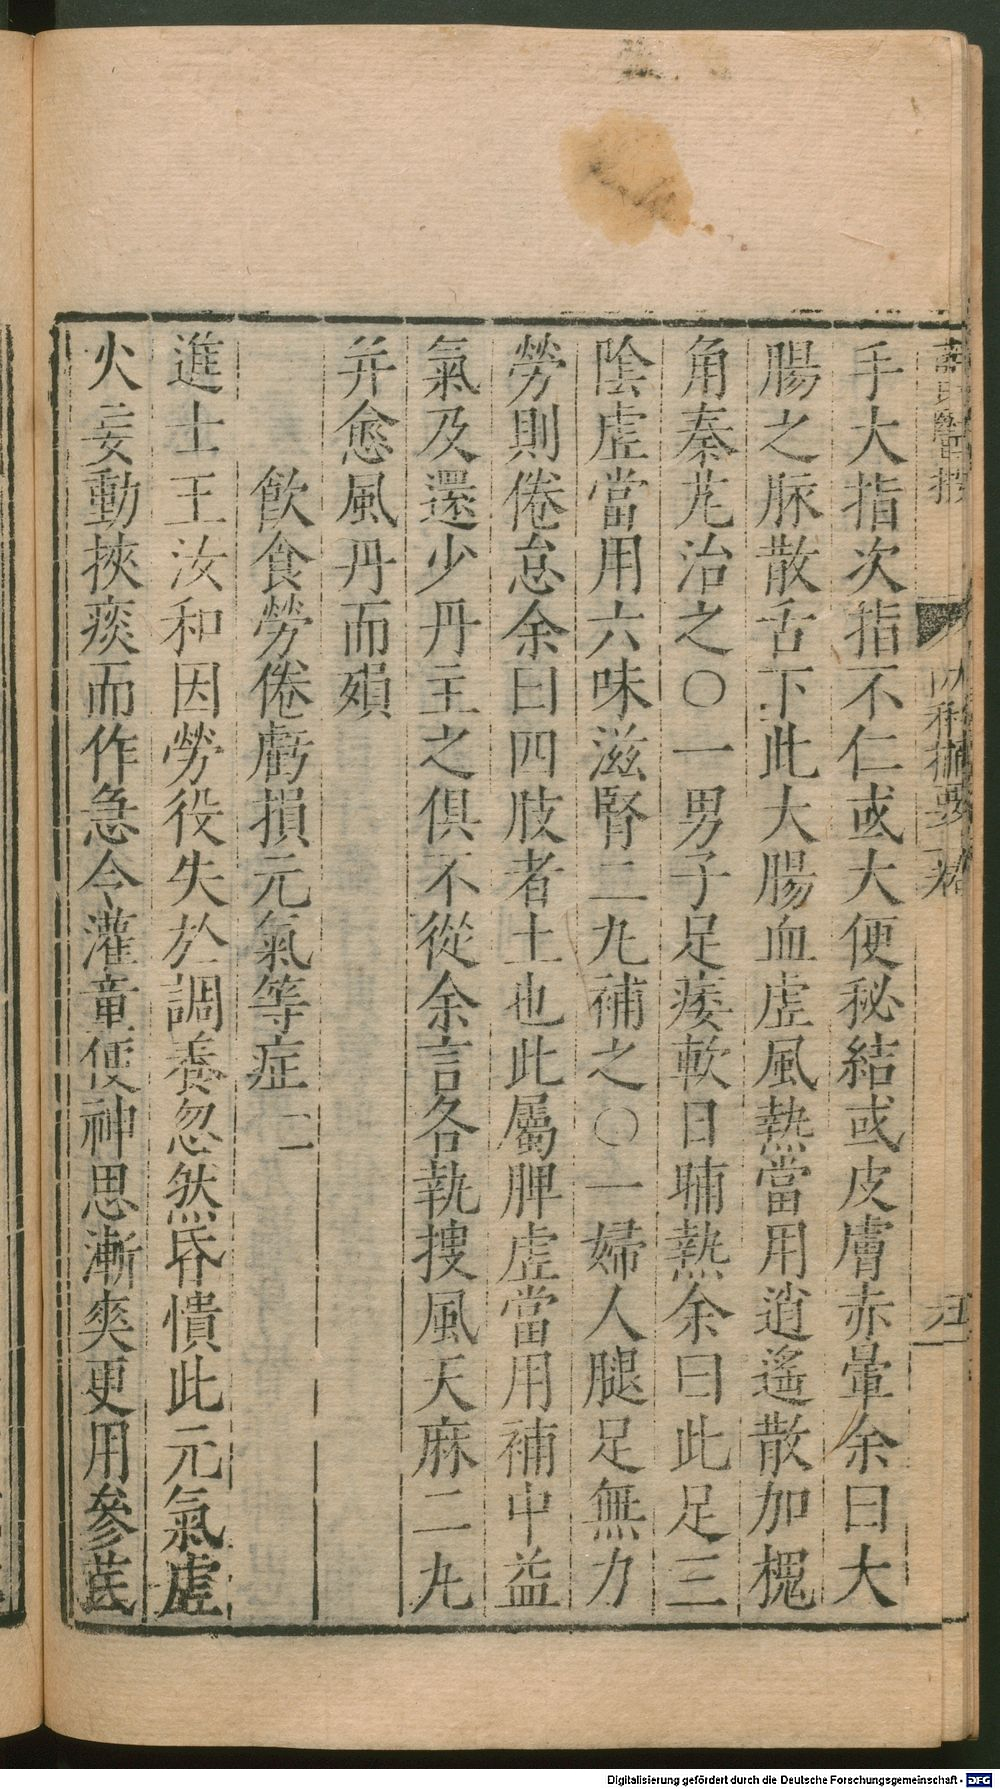 薛氏醫按 内科摘要 卷 五
手大指次指不仁或大便秘結或皮膚赤暈余曰大
腸之脉散舌下此大腸血虛風熱當用逍遙散加槐
角秦艽治之〇一男子足痿軟日晡熱余曰此足三
陰虛當用六味滋腎二丸補之〇一婦人腿足無力
勞則倦怠余曰四肢者土也此屬脾虛當用補中益
氣及還少丹主之俱不從余言各執搜風天麻二丸
并愈風丹而殞
飲食勞倦虧損元氣等症 二
進士王汝和因勞役失於調養忽然昏憒此元氣虛
火妄動挾痰而作急令灌童便神思漸爽更用參芪
Digitalisierung gefördert durch die Deutsche Forschungsgemeinschaft - DFG